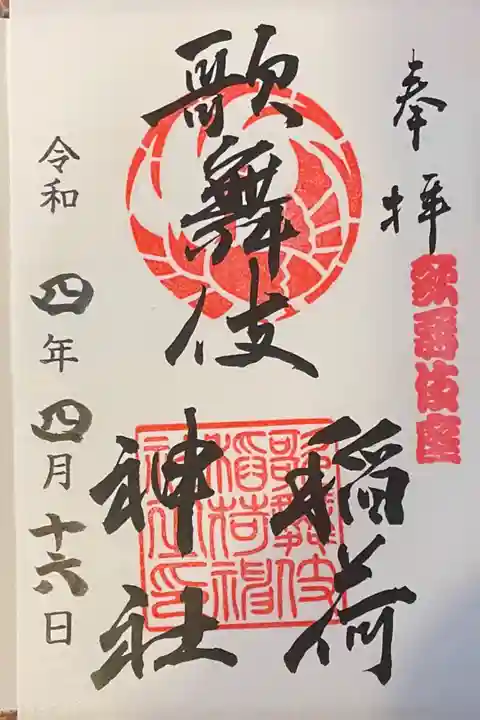 奉拝
歌舞伎座
歌舞伎
稲荷
神社
歌舞伎
稲荷神
社之印
令和四年四月十六日